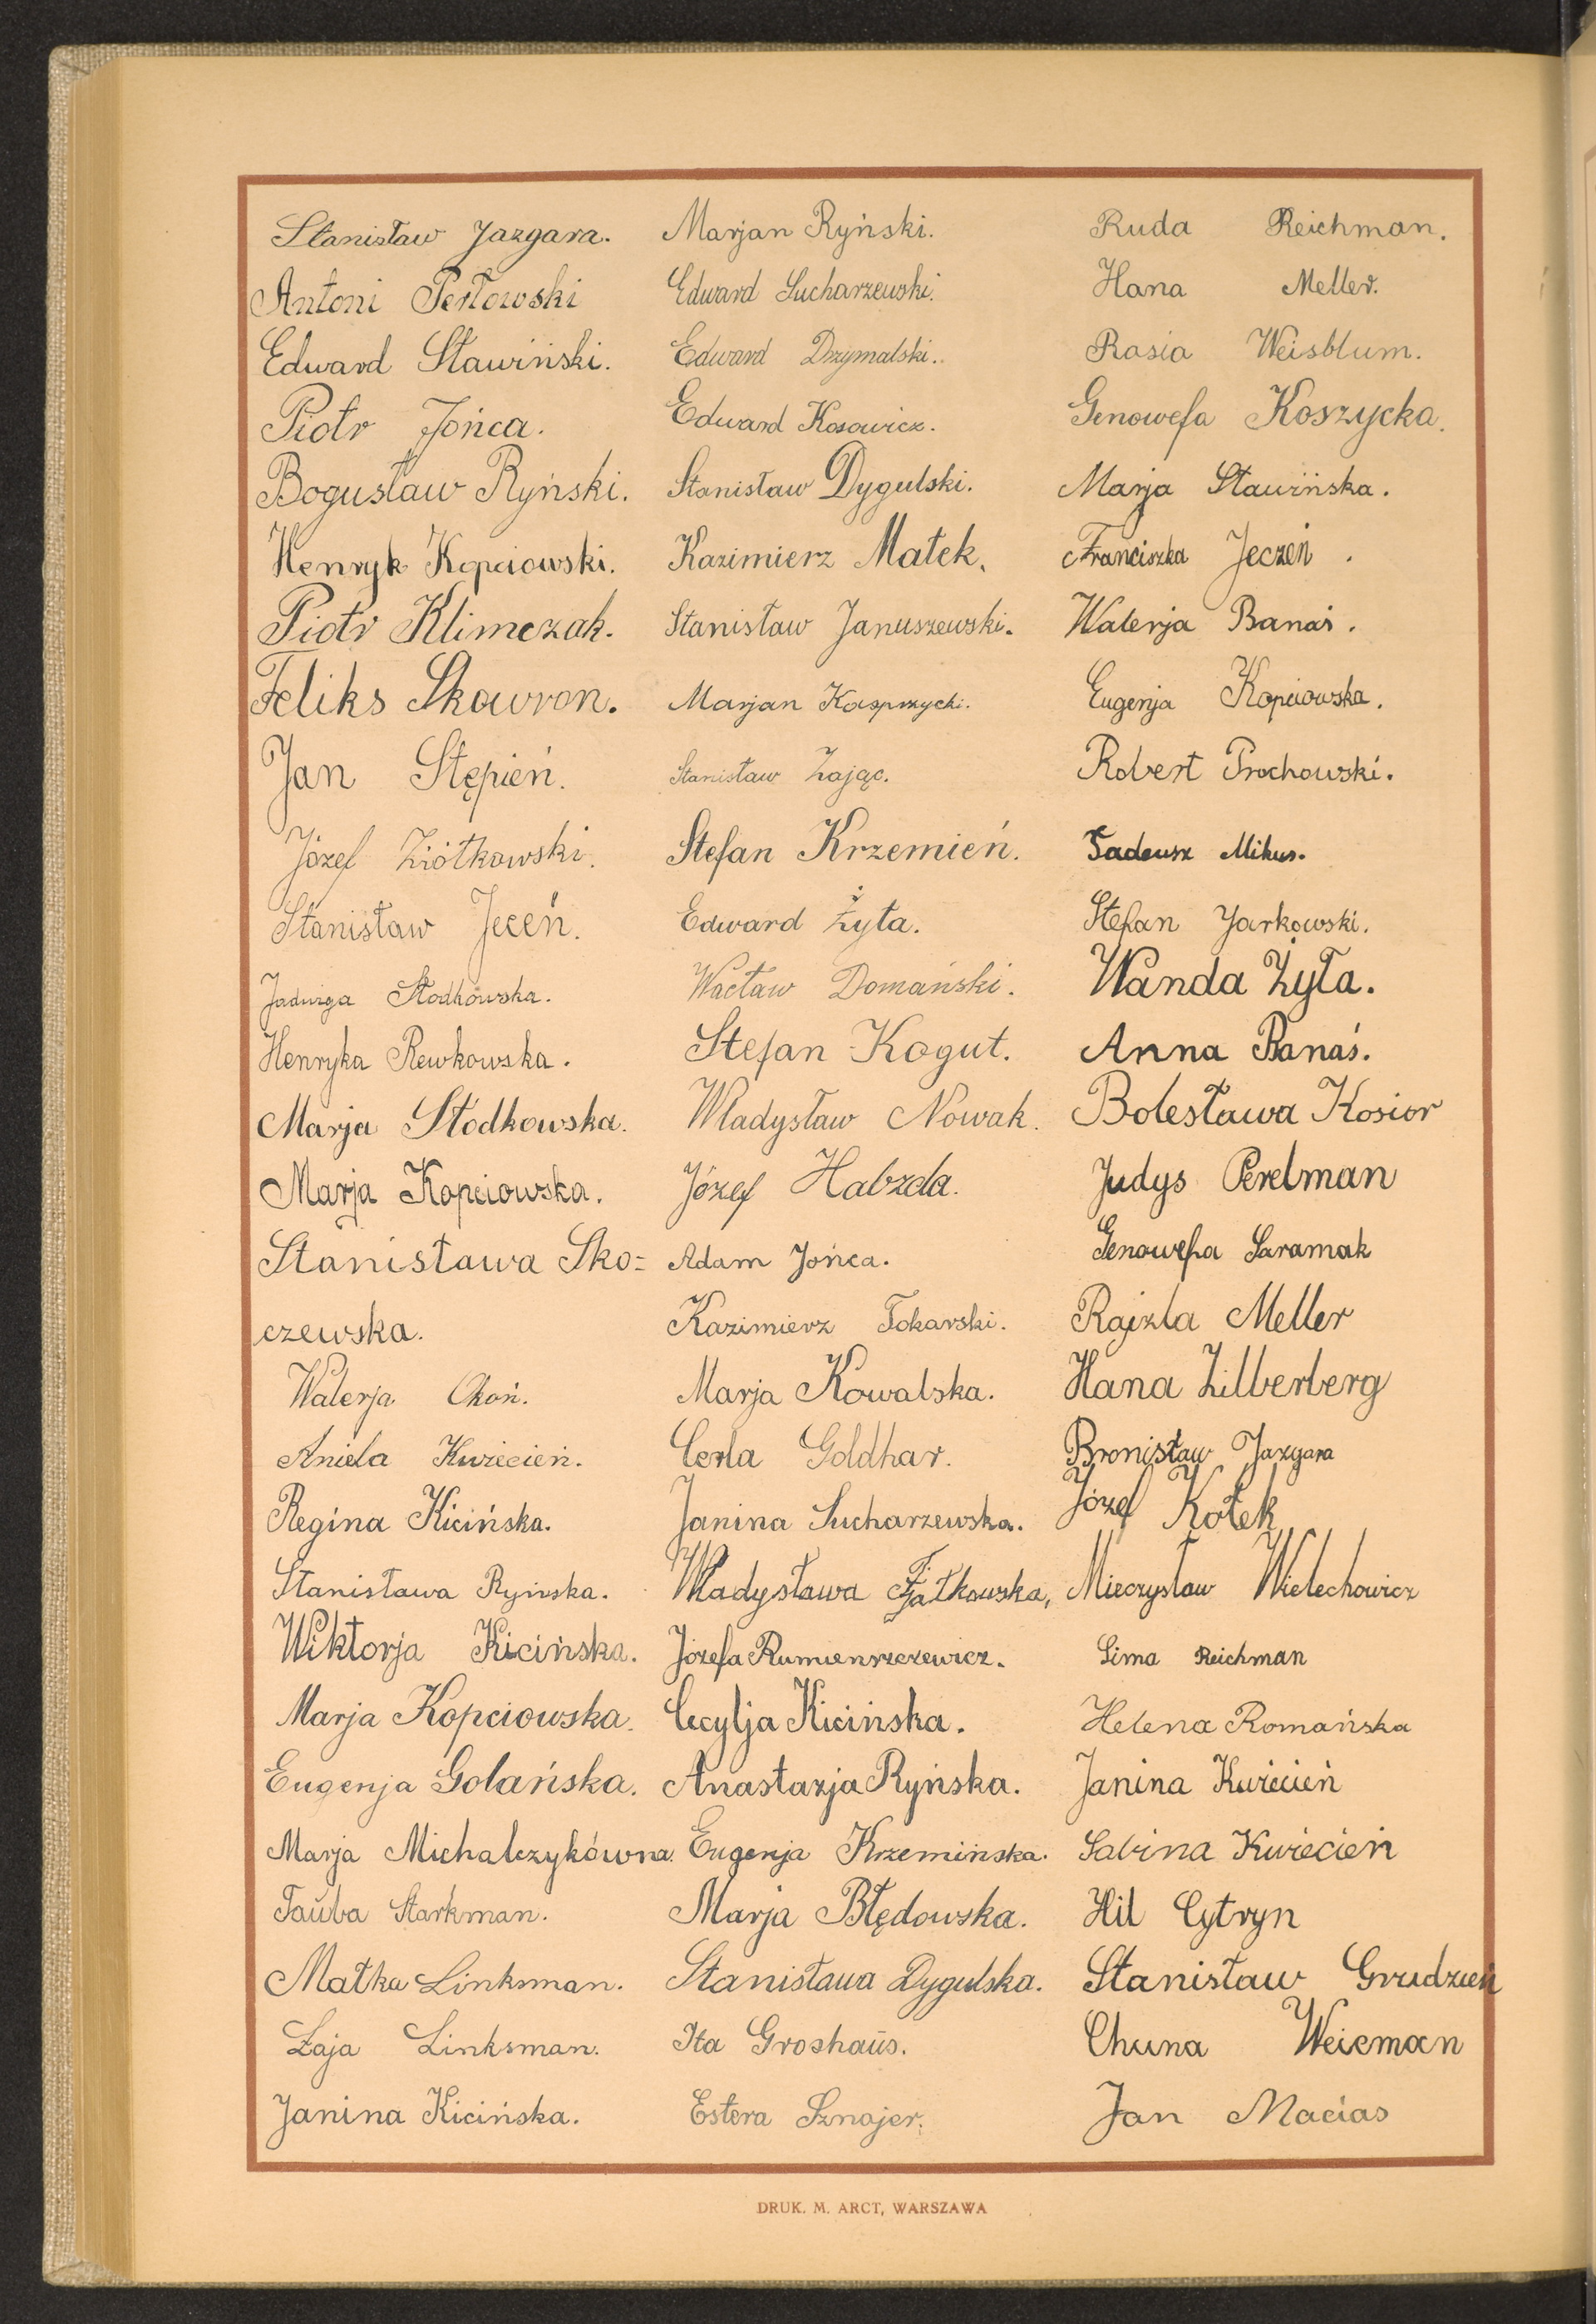 Stanisław Jazgara.
Antoni Perłowski
Edward Sławiński.
Piotr Jońca.
Bogusław Ryński.
Henryk Kopciowski.
Piotr Klimczak.
Feliks Skowron.
Jan Stępień.
Józef Ziółkowski.
Stanisław Jeceń.
Jadwiga Słodkowska.
Henryka Rewkowska.
Marja Słodkowska.
Marja Kopciowska.
Stanisława Sko=
czewska.
Walerja Okoń.
Aniela Kwiecień.
Regina Kicińska.
Stanisława Ryńska.
Wiktorja Kicińska.
Marja Kopciowska.
Eugenja Golańska.
Marja Michalczykówna.
Tauba Starkman.
Małka Linksman.
Łaja Linksman.
Janina Kicińska.
Marjan Ryński.
Edward Sucharzewski.
Edward Drzymalski.
Edward Kosowicz.
Stanisław Dygulski.
Kazimierz Małek.
Stanisław Januszewski.
Marjan Kasprzycki.
Stanisław Zając.
Stefan Krzemień.
Edward Żyła.
Wacław Domański.
Stefan Kogut.
Władysław Nowak.
Józef Habzda.
Adam Jońca.
Kazimierz Tokarski.
Marja Kowalska.
Cerla Goldhar.
Janina Sucharzewska.
Władysława Fijałkowska,
Józefa Rumienszczewicz.
Cecylja Kicińska.
Anastazja Ryńska.
Eugenja Krzemińska.
Marja Błędowska.
Stanisława Dygulska.
Ita Groshaus.
Estera Sznajer.
Ruda Reichman.
Hana Meller.
Rasia Weisblum.
Genowefa Koszycka.
Marja Sławińska.
Franciszka Jeczeń.
Walerja Banaś.
Eugenja Kopciowska.
Robert Prochowski.
Tadeusz Mikus.
Stefan Jarkowski.
Wanda Żyła.
Anna Banaś.
Bolesława Kosior
Judys Perelman
Genowefa Saramak
Rajzla Meller
Hana Zilberberg
Bronisław Jazgara
Józef Kołek
Mieczysław Wielechowicz
Sima Reichman
Helena Romańska
Janina Kwiecień
Sabina Kwiecień
Hil Cytryn
Stanisław Grudzień
Chuna Weicman
Jan Macias
DRUK. M. ARCT, WARSZAWA